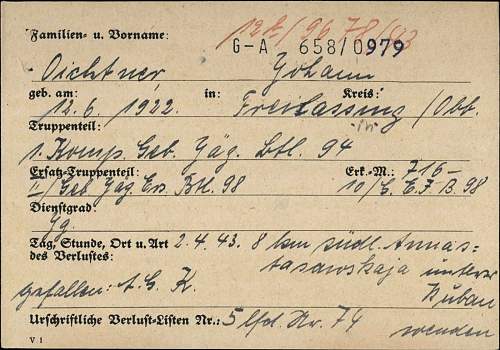 12b/9678/43
Familien- u. Vorname:
G-A 658/0979
Oichtner, Johann
geb. am: in: Kreis:
12.6.1922. Freilassing /Obb.
Truppenteil:
1. Komp. Geb. Jäg. Btl. 94
Ersatz-Truppenteil: Erk.-M.: 716-
II/Geb. Jäg. Ers. Btl. 98 10/ E. J. B. 98
Dienstgrad:
Jg.
Tag, Stunde, Ort u. Art 2.4.43. 8 km südl. Annas-
des Verlustes: tasiewskaja unterer
gefallen: A. G. K. Kuban
Urschriftliche Verlust-Listen Nr.: 5 lfd. Nr. 74
V 1 wenden